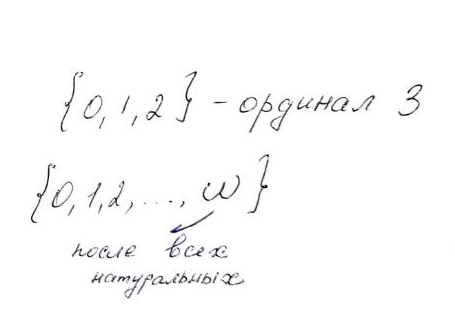 {0, 1, 2} - ординал 3
{0, 1, 2, ..., ω}
после всех
натуральных